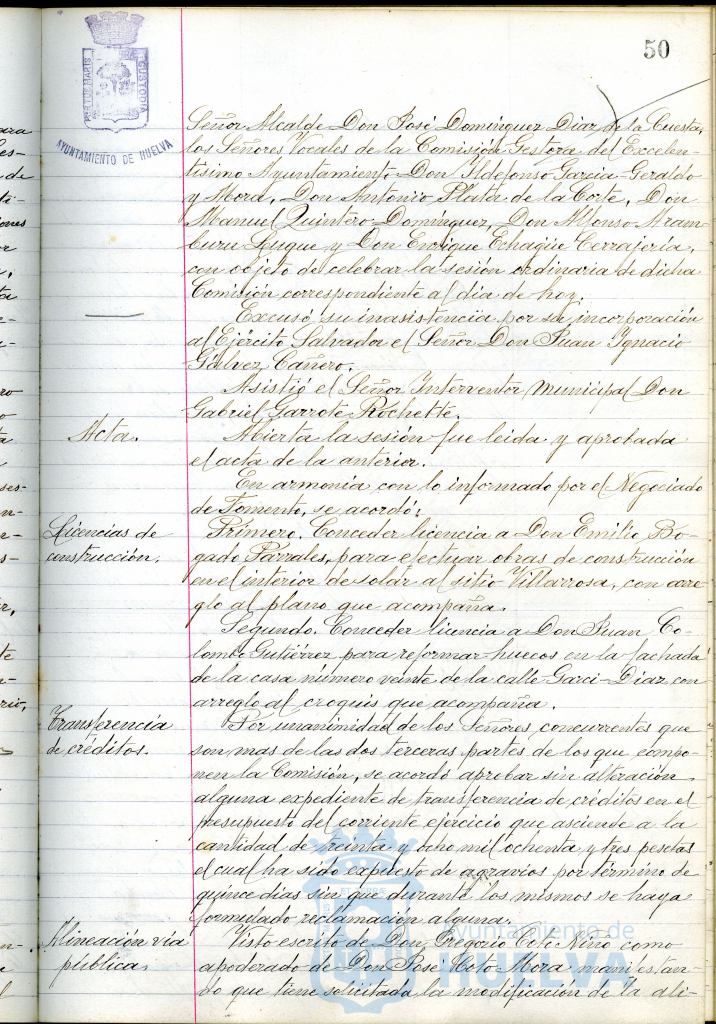 50
PORTUS MARIS
CUSTODIA
AYUNTAMIENTO DE HUELVA
Señor Alcalde Don José Domínguez Diaz de la Cuesta,
los Señores Vocales de la Comisión Gestora del Excelen-
tísimo Ayuntamiento Don Ildefonso Garcia-Geraldo
y Mora, Don Antonio Plata de la Corte, Don
Manuel Quintero Domínguez, Don Alfonso Aram-
buru Luque y Don Enrique Echagüe Cerrajería,
con objeto de celebrar la sesión ordinaria de dicha
Comisión correspondiente al dia de hoy.
Excusó su inasistencia por su incorporación
al Ejército Salvador el Señor Don Juan Ignacio
Gálvez Cañero.
Asistió el Señor Interventor Municipal Don
Gabriel Garrote Rochette.
Acta.
Abierta la sesión fue leida y aprobada
el acta de la anterior.
En armonia con lo informado por el Negociado
de Fomento, se acordó:
Licencias de
construcción.
Primero. Conceder licencia a Don Emilio Bo-
gado Parrales, para efectuar obras de construcción
en el interior de solar al sitio Villarrosa, con arre-
glo al plano que acompaña.
Segundo. Conceder licencia a Don Juan Co-
lombo Gutiérrez para reformar huecos en la fachada
de la casa número veinte de la calle Garci-Diaz, con
arreglo al croquis que acompaña.
Transferencia
de créditos.
Por unanimidad de los Señores concurrentes que
son mas de las dos terceras partes de los que compo-
nen la Comisión, se acordó aprobar sin alteración
alguna expediente de transferencia de créditos en el
presupuesto del corriente ejercicio que asciende a la
cantidad de treinta y ocho mil ochenta y tres pesetas
el cual ha sido expuesto de agravios por término de
quince dias sin que durante los mismos se haya
formulado reclamación alguna.
Alineación via
pública.
Visto escrito de Don Gregorio Coto Niño como
apoderado de Don José Coto Mora manifestan-
do que tiene solicitada la modificación de la ali-
Ayuntamiento de
HUELVA